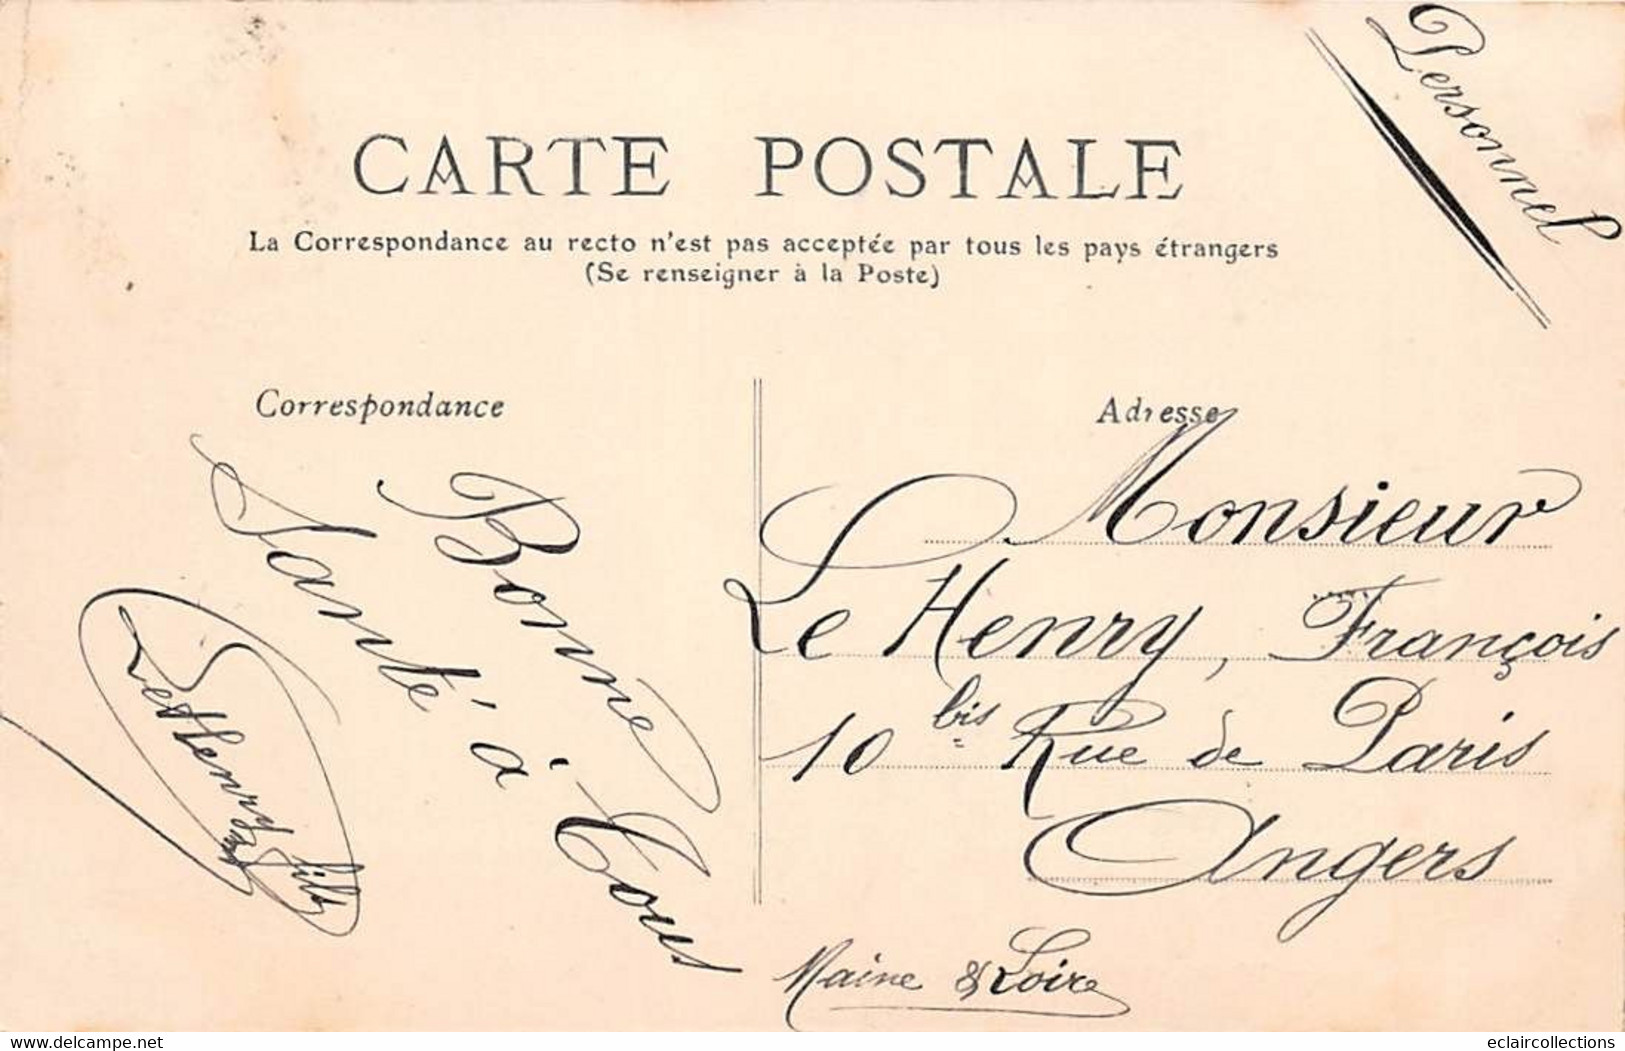 Personnel
CARTE POSTALE
La Correspondance au recto n'est pas acceptée par tous les pays étrangers
(Se renseigner à la Poste)
Correspondance
Bonne
Santé à
Tous
LeHenry fils
Adresse
Monsieur
Le Henry, François
10 bis Rue de Paris
Angers
Maine & Loire
delcampe.net
eclaircollections